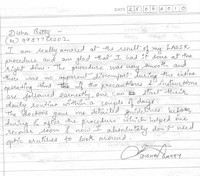 DATE 2 8 0 8 2 0 1 0
Disha Getty -
I am really amazed at the result of my LASER
procedure and am glad that I had it done at the
right time. The procedure was very smooth and
there was no apparent discomfort during the entire
operating time. If the precautions & instructions
are followed earnestly, one can start their
daily routine within a couple of days.
The doctors gave me detailed guidelines before,
during & after the procedure which helped me
recover soon & now I absolutely don't need
optic auxiliaries to look around.